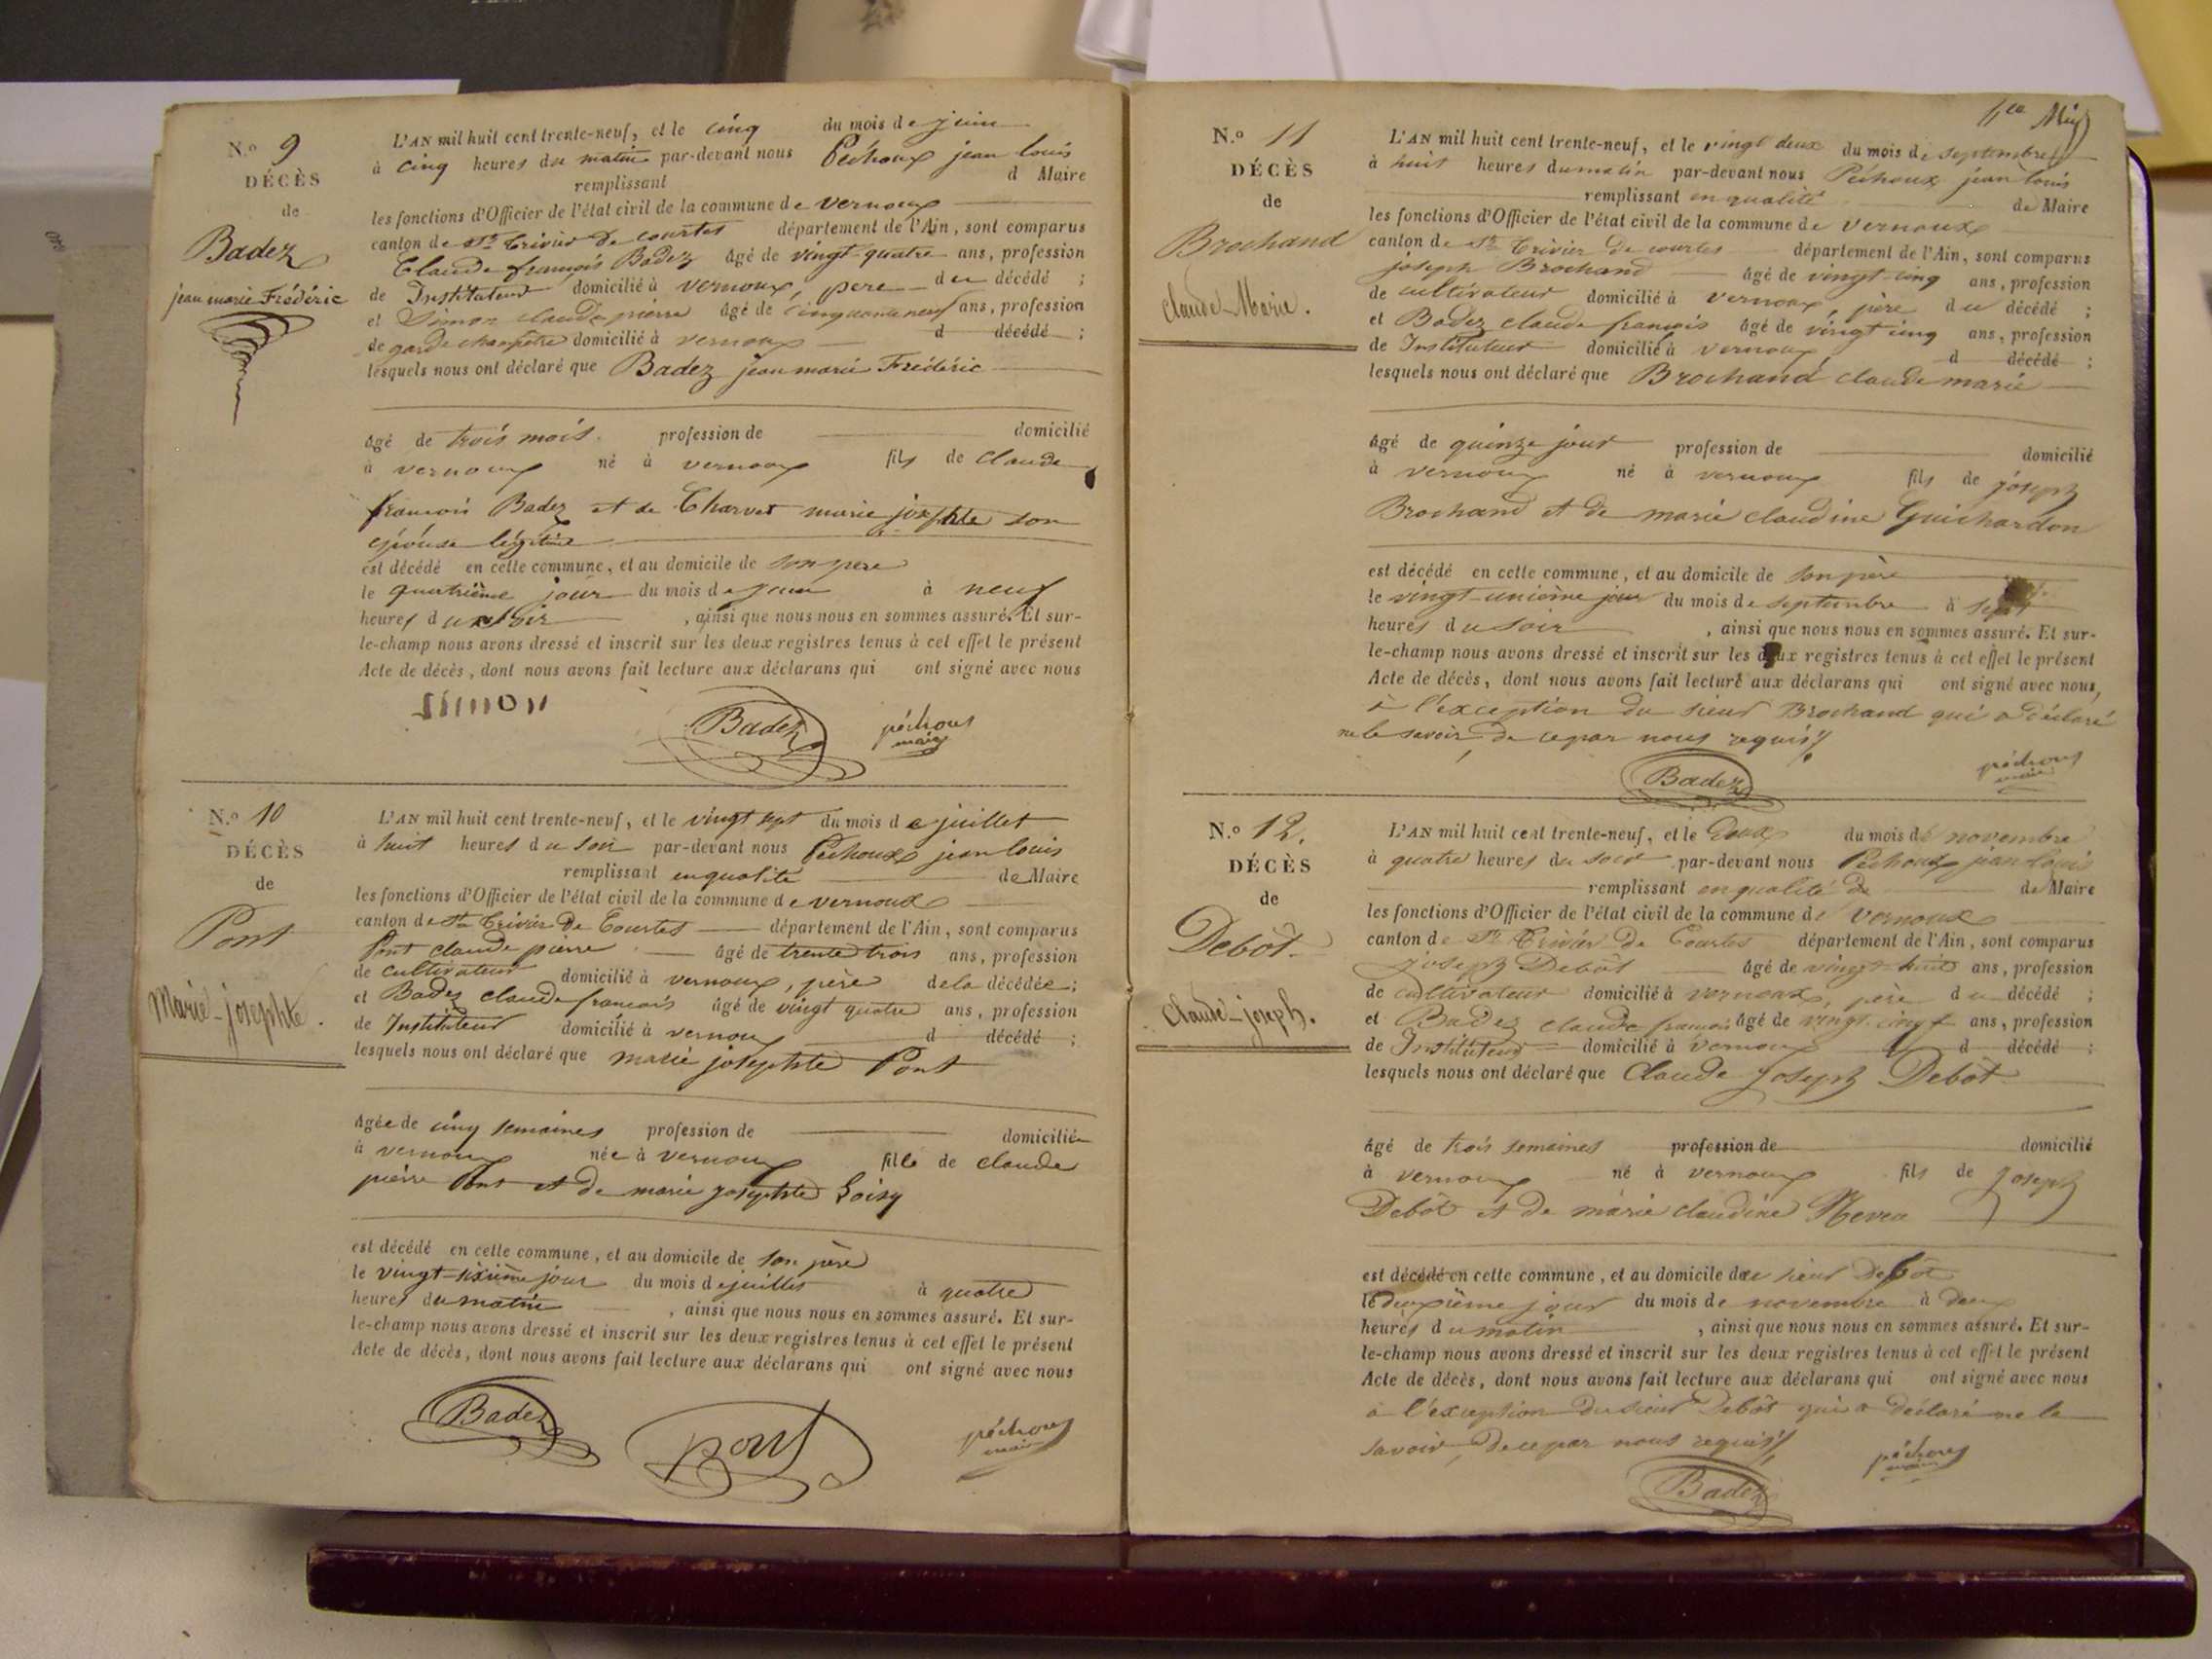 N.o 9
DÉCÈS
de
Badez
jean marie Frédéric
L'AN mil huit cent trente-neuf, et le cinq du mois de juin
à cinq heures du matin par-devant nous Péchoux jean louis
remplissant d Maire
les fonctions d'Officier de l'état civil de la commune de vernoux
canton de St. Trivier de courtes département de l'Ain, sont comparus
Claude françois Badez âgé de vingt-quatre ans, profession
de Instituteur domicilié à vernoux, pere du décédé ;
et Simon claude pierre âgé de cinquante neuf ans, profession
de garde champêtre domicilié à vernoux d décédé ;
lesquels nous ont déclaré que Badez jean marie Frédéric
âgé de trois mois. profession de domicilié
à vernoux né à vernoux fils de claude
françois Badez et de Charvet marie josephte son
épouse légitime
est décédé en cette commune, et au domicile de son pere
le quatrième jour du mois de juin à neuf
heures du soir , ainsi que nous nous en sommes assuré. Et sur-
le-champ nous avons dressé et inscrit sur les deux registres tenus à cet effet le présent
Acte de décès, dont nous avons fait lecture aux déclarans qui ont signé avec nous
Simon Badez péchoux
maire
N.o 10
DÉCÈS
de
Pont
Marie-josephte.
L'AN mil huit cent trente-neuf, et le vingt sept du mois de juillet
à huit heures du soir par-devant nous Péchoux jean louis
remplissant en qualité de Maire
les fonctions d'Officier de l'état civil de la commune de vernoux
canton de St. Trivier De Courtes département de l'Ain, sont comparus
Pont claude pierre âgé de trente trois ans, profession
de cultivateur domicilié à vernoux, père de la décédée ;
et Badez claude françois âgé de vingt quatre ans, profession
de Instituteur domicilié à vernoux d décédé ;
lesquels nous ont déclaré que marie josephte Pont
âgée de cinq semaines profession de domiciliée
à vernoux née à vernoux fille de claude
pierre Pont et de marie josephte Loisy
est décédé en cette commune, et au domicile de son père
le vingt-sixième jour du mois de juillet à quatre
heures du matin , ainsi que nous nous en sommes assuré. Et sur-
le-champ nous avons dressé et inscrit sur les deux registres tenus à cet effet le présent
Acte de décès, dont nous avons fait lecture aux déclarans qui ont signé avec nous
Badez pont péchoux
maire
N.o 11
DÉCÈS
de
Brochand
Claude-Marie.
L'AN mil huit cent trente-neuf, et le vingt deux du mois de septembre
à huit heures du matin par-devant nous Péchoux jean louis
remplissant en qualité de Maire
les fonctions d'Officier de l'état civil de la commune de vernoux
canton de St. Trivier De courtes département de l'Ain, sont comparus
joseph Brochand âgé de vingt-cinq ans, profession
de cultivateur domicilié à vernoux, père du décédé ;
et Badez claude françois âgé de vingt cinq ans, profession
de Instituteur domicilié à vernoux, d décédé ;
lesquels nous ont déclaré que Brochand claude marie
âgé de quinze jour profession de domicilié
à vernoux né à vernoux fils de joseph
Brochand et de marie claudine Guichardon
est décédé en cette commune, et au domicile de son père
le vingt-unième jour du mois de septembre à sept
heures du soir , ainsi que nous nous en sommes assuré. Et sur-
le-champ nous avons dressé et inscrit sur les deux registres tenus à cet effet le présent
Acte de décès, dont nous avons fait lecture aux déclarans qui ont signé avec nous,
à l'exception du sieur Brochand qui a déclaré
ne le savoir, de ce par nous requis
Badez péchoux
maire
N.o 12.
DÉCÈS
de
Debôt.
Claude-joseph.
L'AN mil huit cent trente-neuf, et le Deux du mois de novembre
à quatre heures du soir par-devant nous Péchoux jean louis
remplissant en qualité de de Maire
les fonctions d'Officier de l'état civil de la commune de vernoux
canton de St. Trivier De Courtes département de l'Ain, sont comparus
joseph Debôt âgé de vingt-huit ans, profession
de cultivateur domicilié à vernoux, père du décédé ;
et Badez claude françois âgé de vingt-cinq ans, profession
de Instituteur domicilié à vernoux d décédé ;
lesquels nous ont déclaré que Claude Joseph Debôt
âgé de trois semaines profession de domicilié
à vernoux né à vernoux fils de Joseph
Debôt et de marie claudine
est décédé en cette commune, et au domicile du sieur Debôt
le deuxième jour du mois de novembre à deux
heures du matin , ainsi que nous nous en sommes assuré. Et sur-
le-champ nous avons dressé et inscrit sur les deux registres tenus à cet effet le présent
Acte de décès, dont nous avons fait lecture aux déclarans qui ont signé avec nous
à l'exception du sieur Debôt qui a déclaré ne le
savoir, de ce par nous requis
Badez péchoux
maire